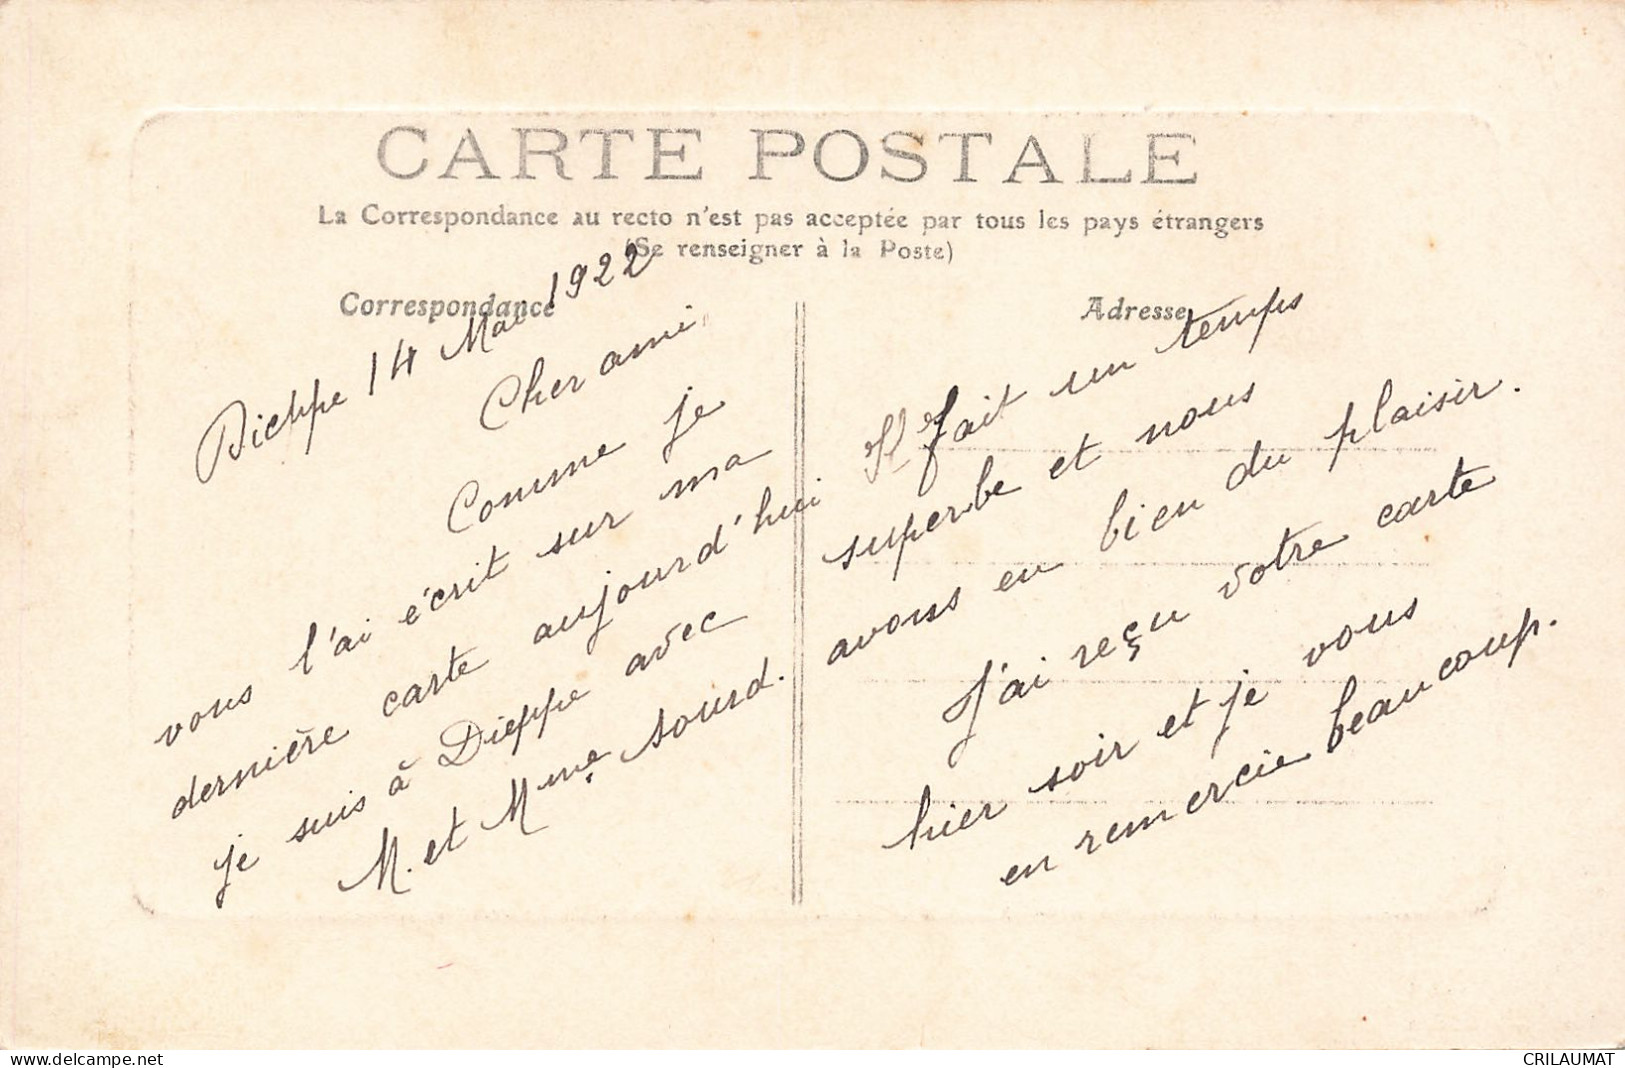 CARTE POSTALE
La Correspondance au recto n'est pas acceptée par tous les pays étrangers
(Se renseigner à la Poste)
Correspondance
Adresse
Dieppe 14 Mai 1922
Cher ami
Comme je
vous l'ai écrit sur ma
dernière carte aujourd'hui
je suis à Dieppe avec
M. et Mme Sourd.
Il fait un temps
superbe et nous
avons eu bien du plaisir.
J'ai reçu votre carte
hier soir et je vous
en remercie beaucoup.
delcampe.net
CRILAUMAT